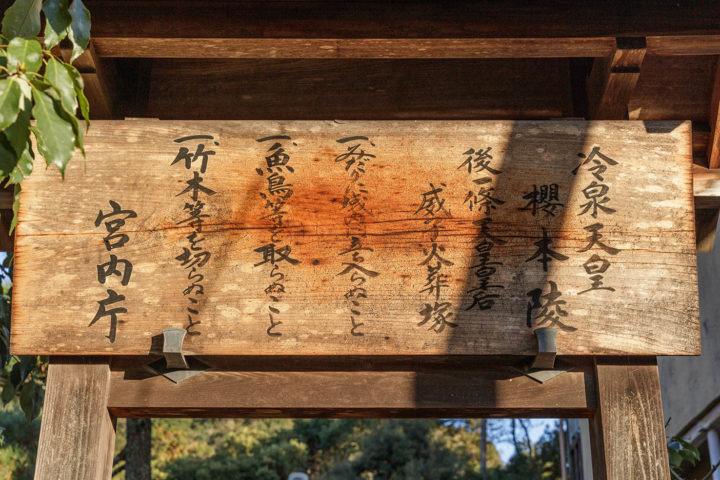 冷泉天皇
櫻本陵
後一條天皇皇后
威子火葬塚
一、みだりに域内に立入らぬこと
一、魚鳥等を取らぬこと
一、竹木等を切らぬこと
宮内庁